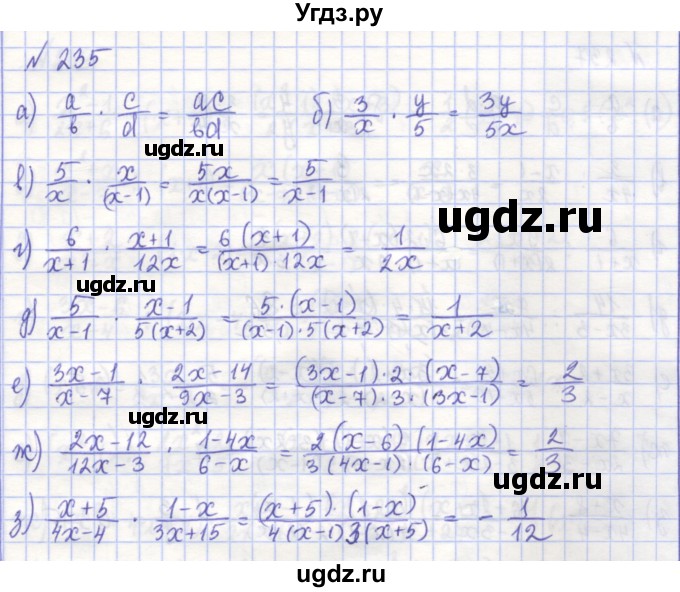 Угдз.ру
№ 235
а) a/b · c/d = ac/bd б) 3/x · y/5 = 3y/5x
ugdz.ru
в) 5/x · x/(x-1) = 5x/x(x-1) = 5/x-1
ugdz.ru
г) 6/x+1 · x+1/12x = 6(x+1)/(x+1)·12x = 1/2x
ugdz.ru
д) 5/x-1 · x-1/5(x+2) = 5·(x-1)/(x-1)·5(x+2) = 1/x+2
е) 3x-1/x-7 · 2x-14/9x-3 = (3x-1)·2·(x-7)/(x-7)·3·(3x-1) = 2/3
ugdz.ru
ж) 2x-12/12x-3 · 1-4x/6-x = 2(x-6)(1-4x)/3(4x-1)·(6-x) = 2/3
ugdz.ru
з) x+5/4x-4 · 1-x/3x+15 = (x+5)·(1-x)/4(x-1)3(x+5) = -1/12
ugdz.ru
ugdz.ru